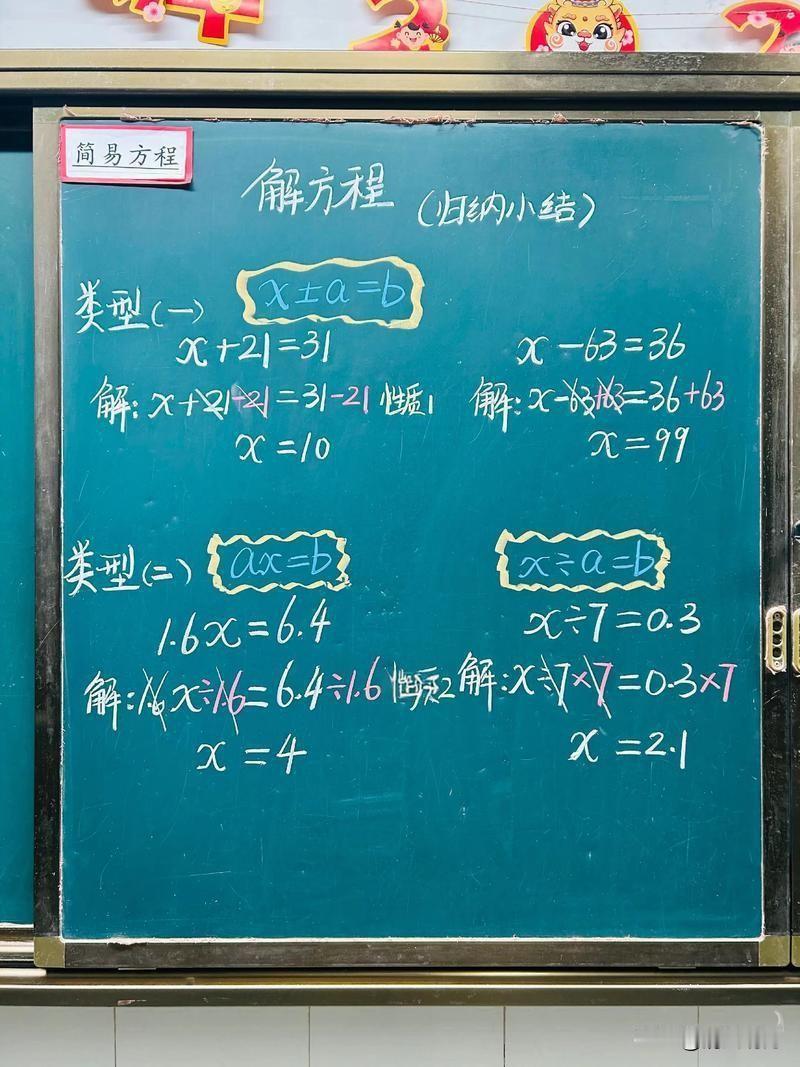 简易方程
解方程 (归纳小结)
类型(一) x±a=b
x+21=31
解: x+21-21=31-21 性质1
x=10
x-63=36
解: x-63+63=36+63
x=99
类型(二) ax=b
1.6x=6.4
解: 1.6x÷1.6=6.4÷1.6 性质2
x=4
x÷a=b
x÷7=0.3
解: x÷7×7=0.3×7
x=2.1